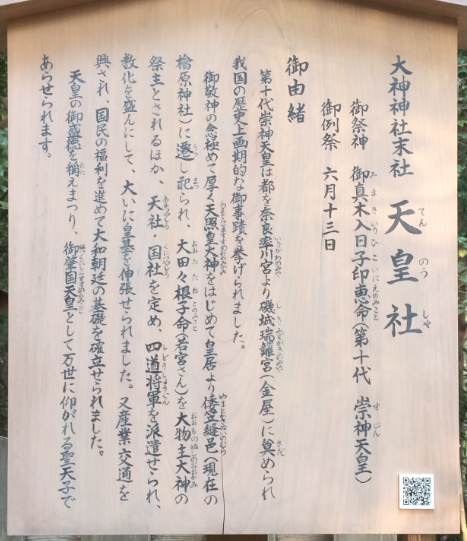 大神神社末社 天皇社
てん のう しゃ
御祭神 御真木入日子印恵命(第十代 崇神天皇)
みまきいりひこいにえのみこと す じん
御例祭 六月十三日
御由緒
第十代崇神天皇は都を奈良率川宮より磯城瑞籬宮(金屋)に奠められ
我国の歴史上画期的な御事蹟を挙げられました。
御敬神の念極めて厚く天照皇大神をはじめて皇居より倭笠縫邑(現在の
檜原神社)に遷し祀られ、大田々根子命(若宮さん)を大物主大神の
祭主とされるほか、天社、国社を定め、四道将軍を派遣せられ、
教化を盛んにして、大いに皇基を伸張せられました。又産業、交通を
興され、国民の福利を進めて大和朝廷の基礎を確立せられました。
天皇の御盛徳を称えまつり、御肇国天皇として万世に仰がれる聖天子で
あらせられます。